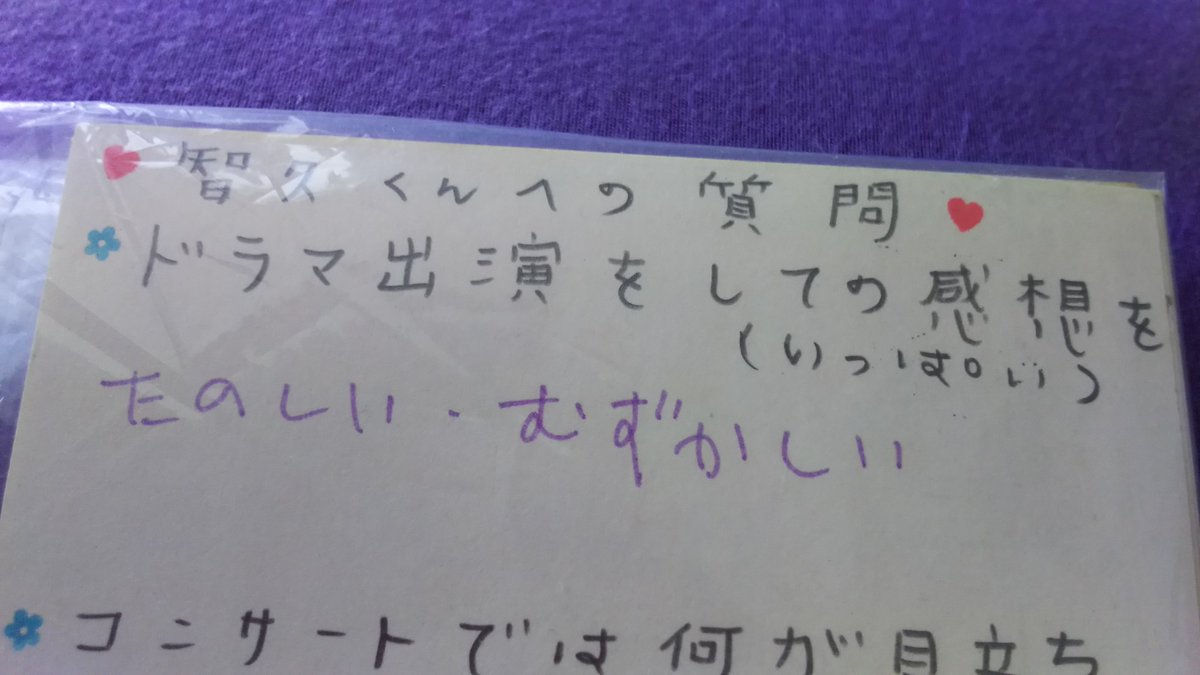 智久くんへの質問
ドラマ出演をしての感想を
(いっぱい)
たのしい・むずかしい
コンサートでは何が目立ち